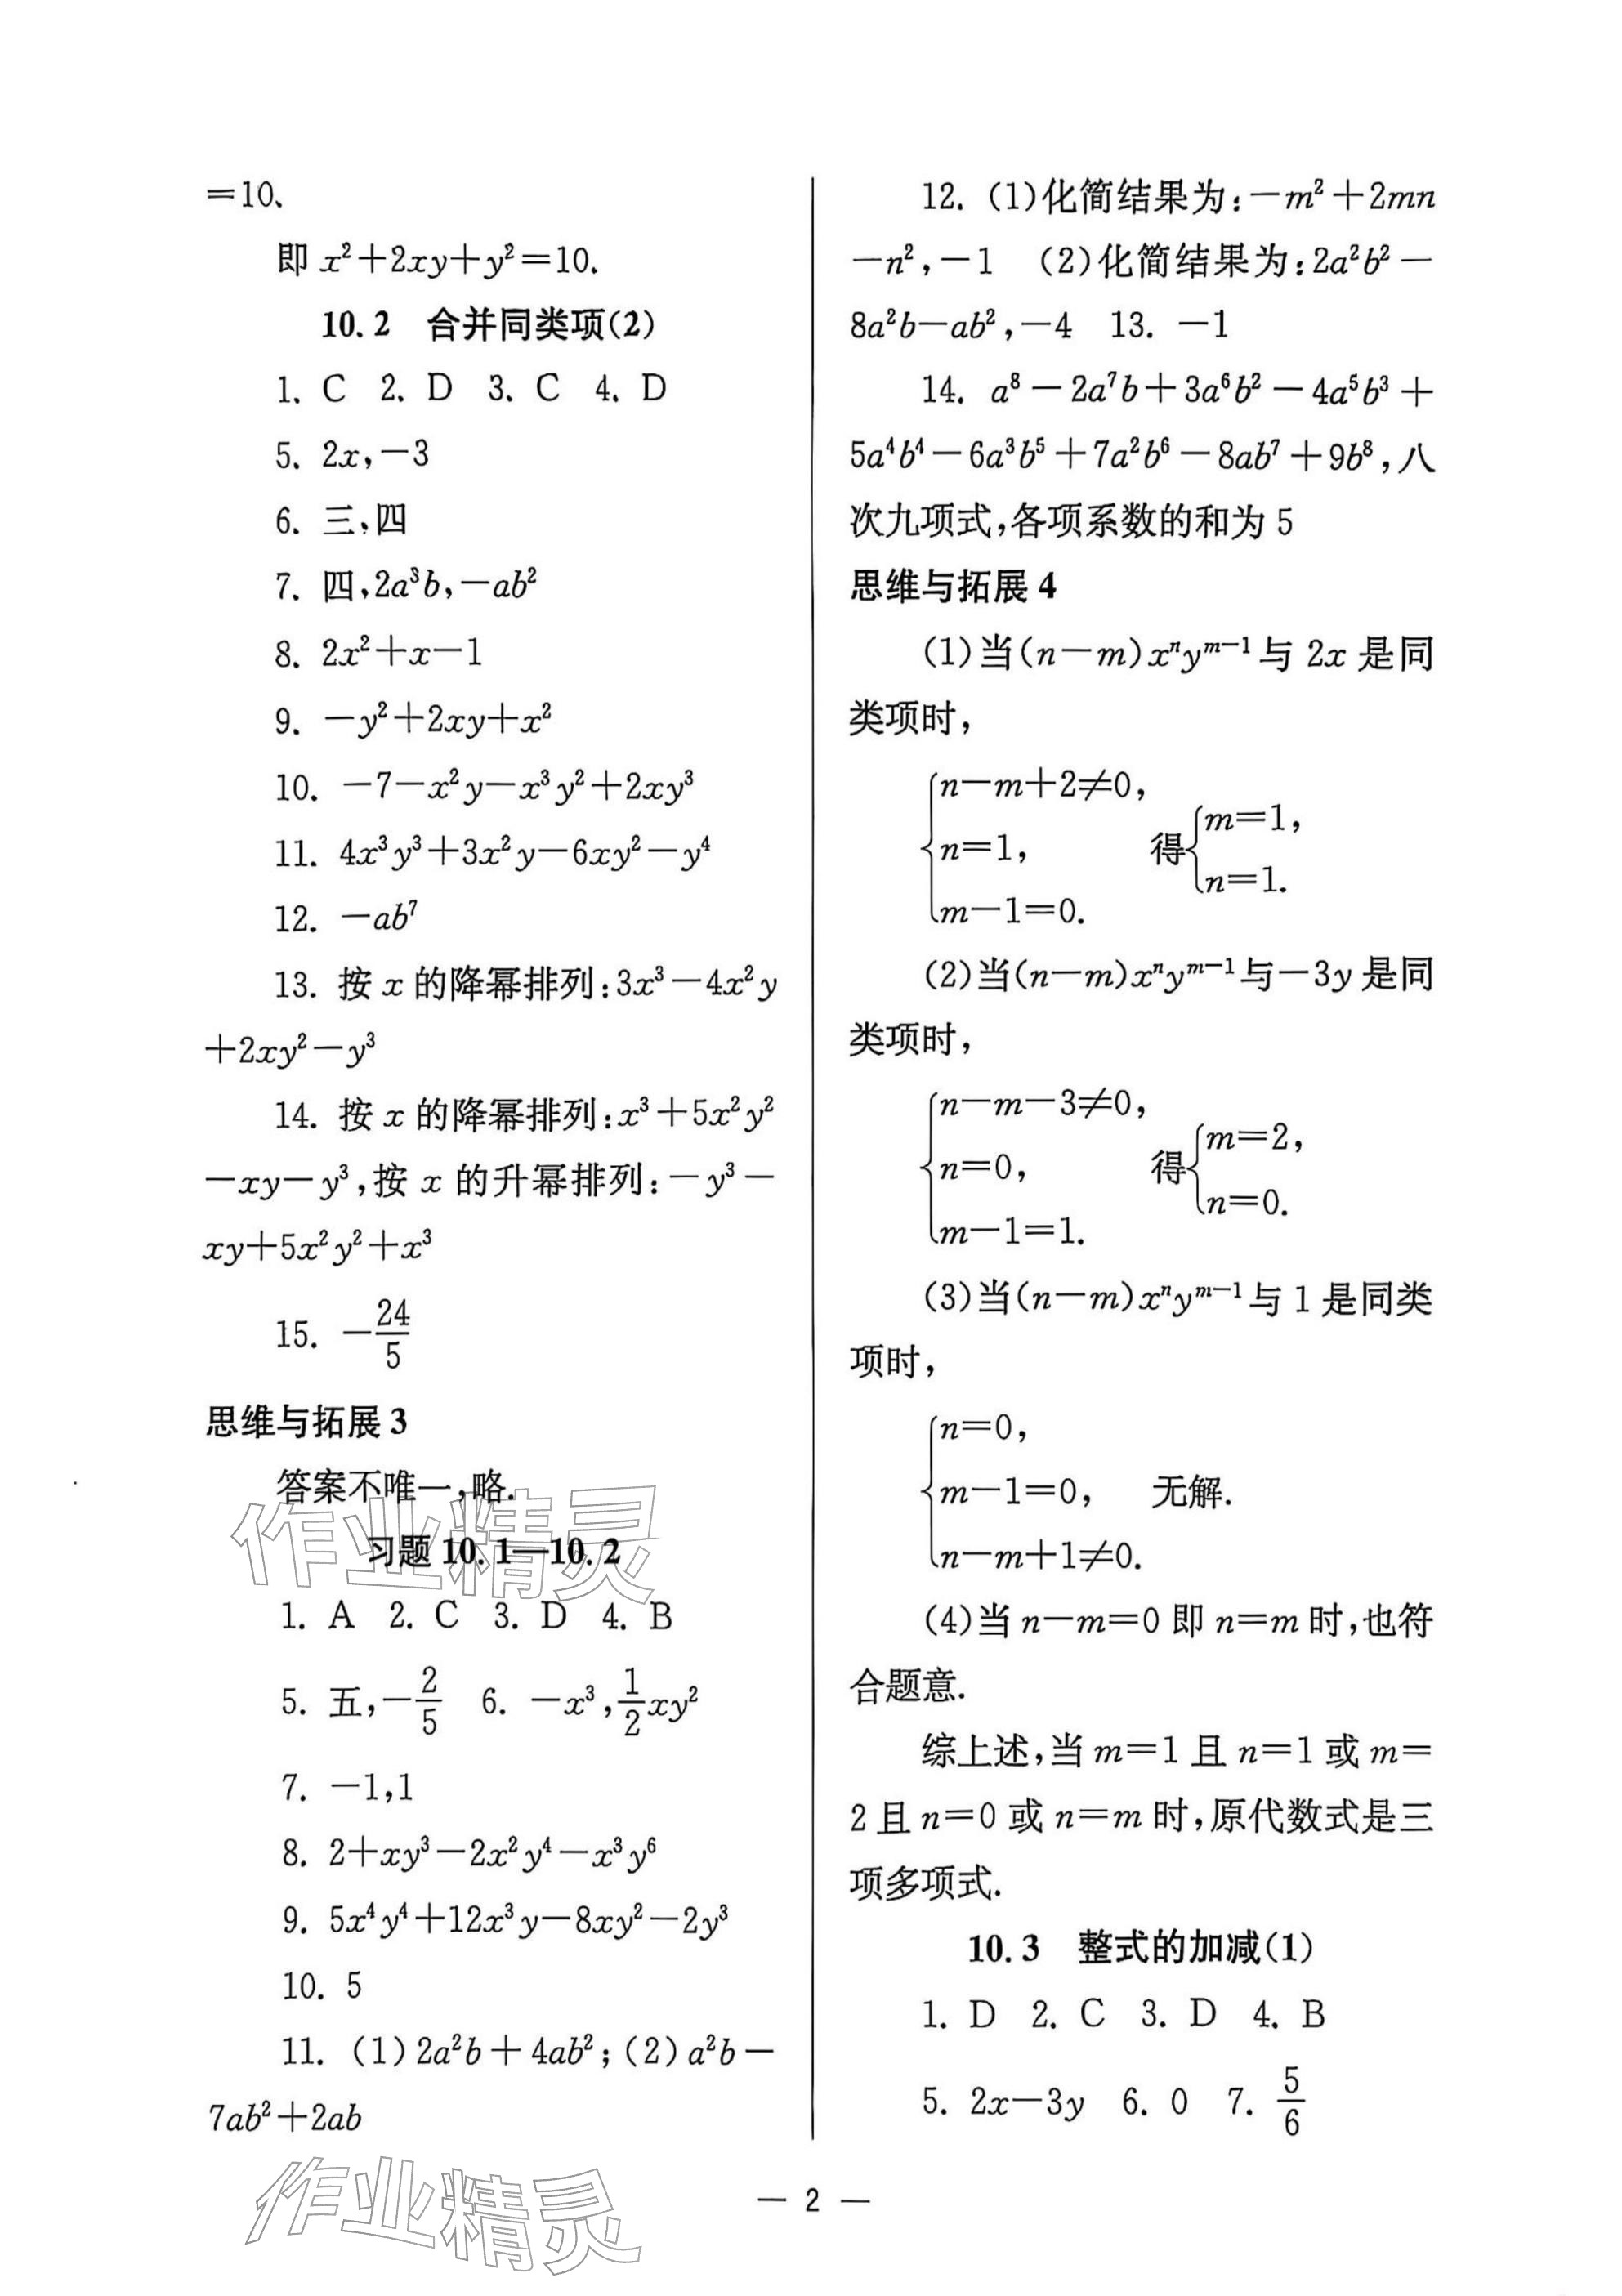 =10.
即 x²+2xy+y²=10.
10.2 合并同类项(2)
1. C 2. D 3. C 4. D
5. 2x,−3
6. 三、四
7. 四,2a³b,−ab²
8. 2x²+x−1
9. −y²+2xy+x²
10. −7−x²y−x³y²+2xy³
11. 4x³y³+3x²y−6xy²−y⁴
12. −ab⁷
13. 按 x 的降幂排列:3x³−4x²y
+2xy²−y³
14. 按 x 的降幂排列:x³+5x²y²
−xy−y³,按 x 的升幂排列:−y³−
xy+5x²y²+x³
15. −24/5
思维与拓展 3
答案不唯一,略.
习题 10.1—10.2
1. A 2. C 3. D 4. B
5. 五,−2/5 6. −x³,1/2xy²
7. −1,1
8. 2+xy³−2x²y⁴−x³y⁶
9. 5x⁴y⁴+12x³y−8xy²−2y³
10. 5
11. (1)2a²b+4ab²;(2)a²b−
7ab²+2ab
12. (1)化简结果为:−m²+2mn
−n²,−1 (2)化简结果为:2a²b²−
8a²b−ab²,−4 13. −1
14. a⁸−2a⁷b+3a⁶b²−4a⁵b³+
5a⁴b⁴−6a³b⁵+7a²b⁶−8ab⁷+9b⁸,八
次九项式,各项系数的和为 5
思维与拓展 4
(1)当(n−m)xⁿyᵐ⁻¹与 2x 是同
类项时,
n−m+2≠0,
n=1, 得 m=1,
n=1.
m−1=0.
(2)当(n−m)xⁿyᵐ⁻¹与−3y 是同
类项时,
n−m−3≠0,
n=0, 得 m=2,
n=0.
m−1=1.
(3)当(n−m)xⁿyᵐ⁻¹与 1 是同类
项时,
n=0,
m−1=0, 无解.
n−m+1≠0.
(4)当 n−m=0 即 n=m 时,也符
合题意.
综上述,当 m=1 且 n=1 或 m=
2 且 n=0 或 n=m 时,原代数式是三
项多项式.
10.3 整式的加减(1)
1. D 2. C 3. D 4. B
5. 2x−3y 6. 0 7. 5/6
— 2 —
作业精灵
作业精灵